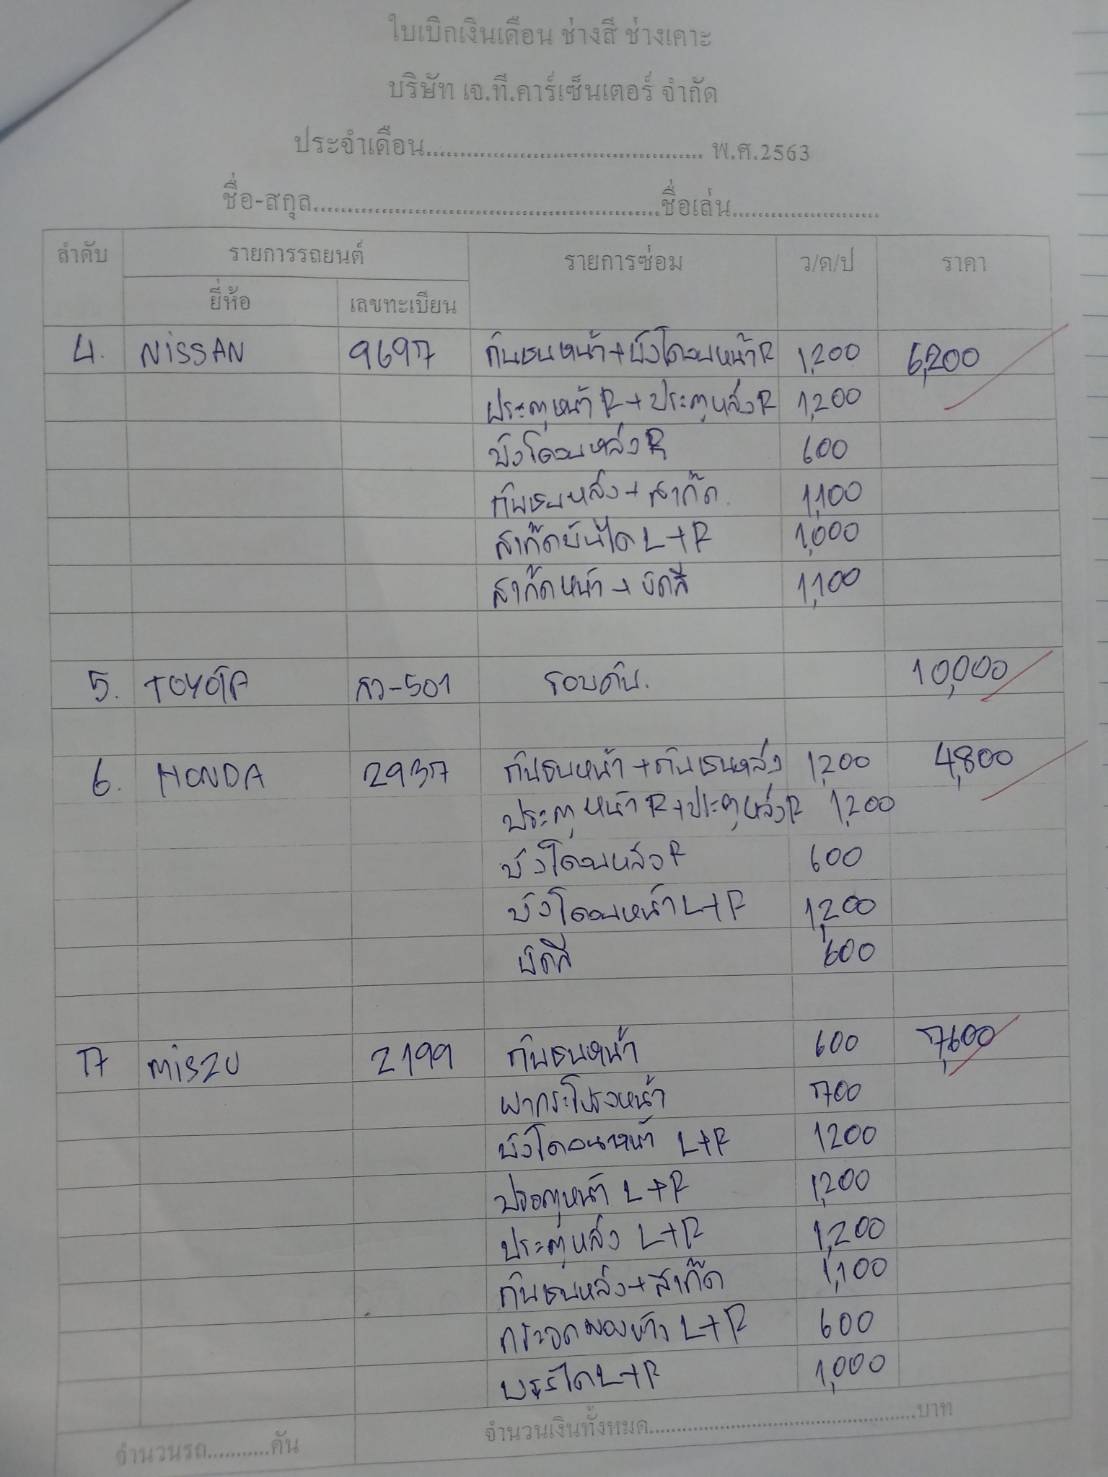 ใบเบิกเงินเดือน ช่างสี ช่างเคาะ
บริษัท เจ.ที.คาร์เซ็นเตอร์ จำกัด
ประจำเดือน.......................................... พ.ศ.2563
ชื่อ-สกุล....................................................ชื่อเล่น......................
ลำดับ รายการรถยนต์ รายการซ่อม ว/ด/ป ราคา
ยี่ห้อ เลขทะเบียน
4. NISSAN 9697 กันชนหน้า+บังโคลนหน้า R 1,200 6,200
ประตูหน้า R+ประตูหลัง R 1,200
บังโคลนหลัง R 600
กันชนหลัง+สาเก๊ต 1,100
สาเก๊ตบันได L+R 1,000
สาเก๊ตหน้า+ขัดสี 1,100
5. TOYOTA กว-501 รอบคัน. 10,000
6. HONDA 2937 กันชนหน้า+กันชนหลัง 1,200 4,800
ประตูหน้า R+ประตูหลัง R 1,200
บังโคลนหลัง R 600
บังโคลนหน้า L+R 1,200
ขัดสี 600
7 miszu 2199 กันชนหน้า 600 7,600
ฝากระโปรงหน้า 700
บังโคลนหน้า L+R 1200
ประตูหน้า L+R 1,200
ประตูหลัง L+R 1,200
กันชนหลัง+สาเก๊ต 1,100
กระจกมองข้าง L+R 600
บรรได L+R 1,000
จำนวนรถ...........คัน จำนวนเงินทั้งหมด..........................................บาท